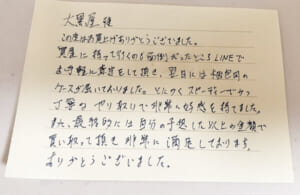 大黒屋 様
この度はお買上げありがとうございました。
質屋に持って行くのも面倒だったところLINEで
お手軽に査定をして頂き、翌日には梱包用の
ケースが届いておりました。とにかくスピーディーでかつ
丁寧なやり取りで非常に好感を持てました。
また、最終的には自分の予想した以上の金額で
買い取って頂き非常に満足しております。
ありがとうございました。